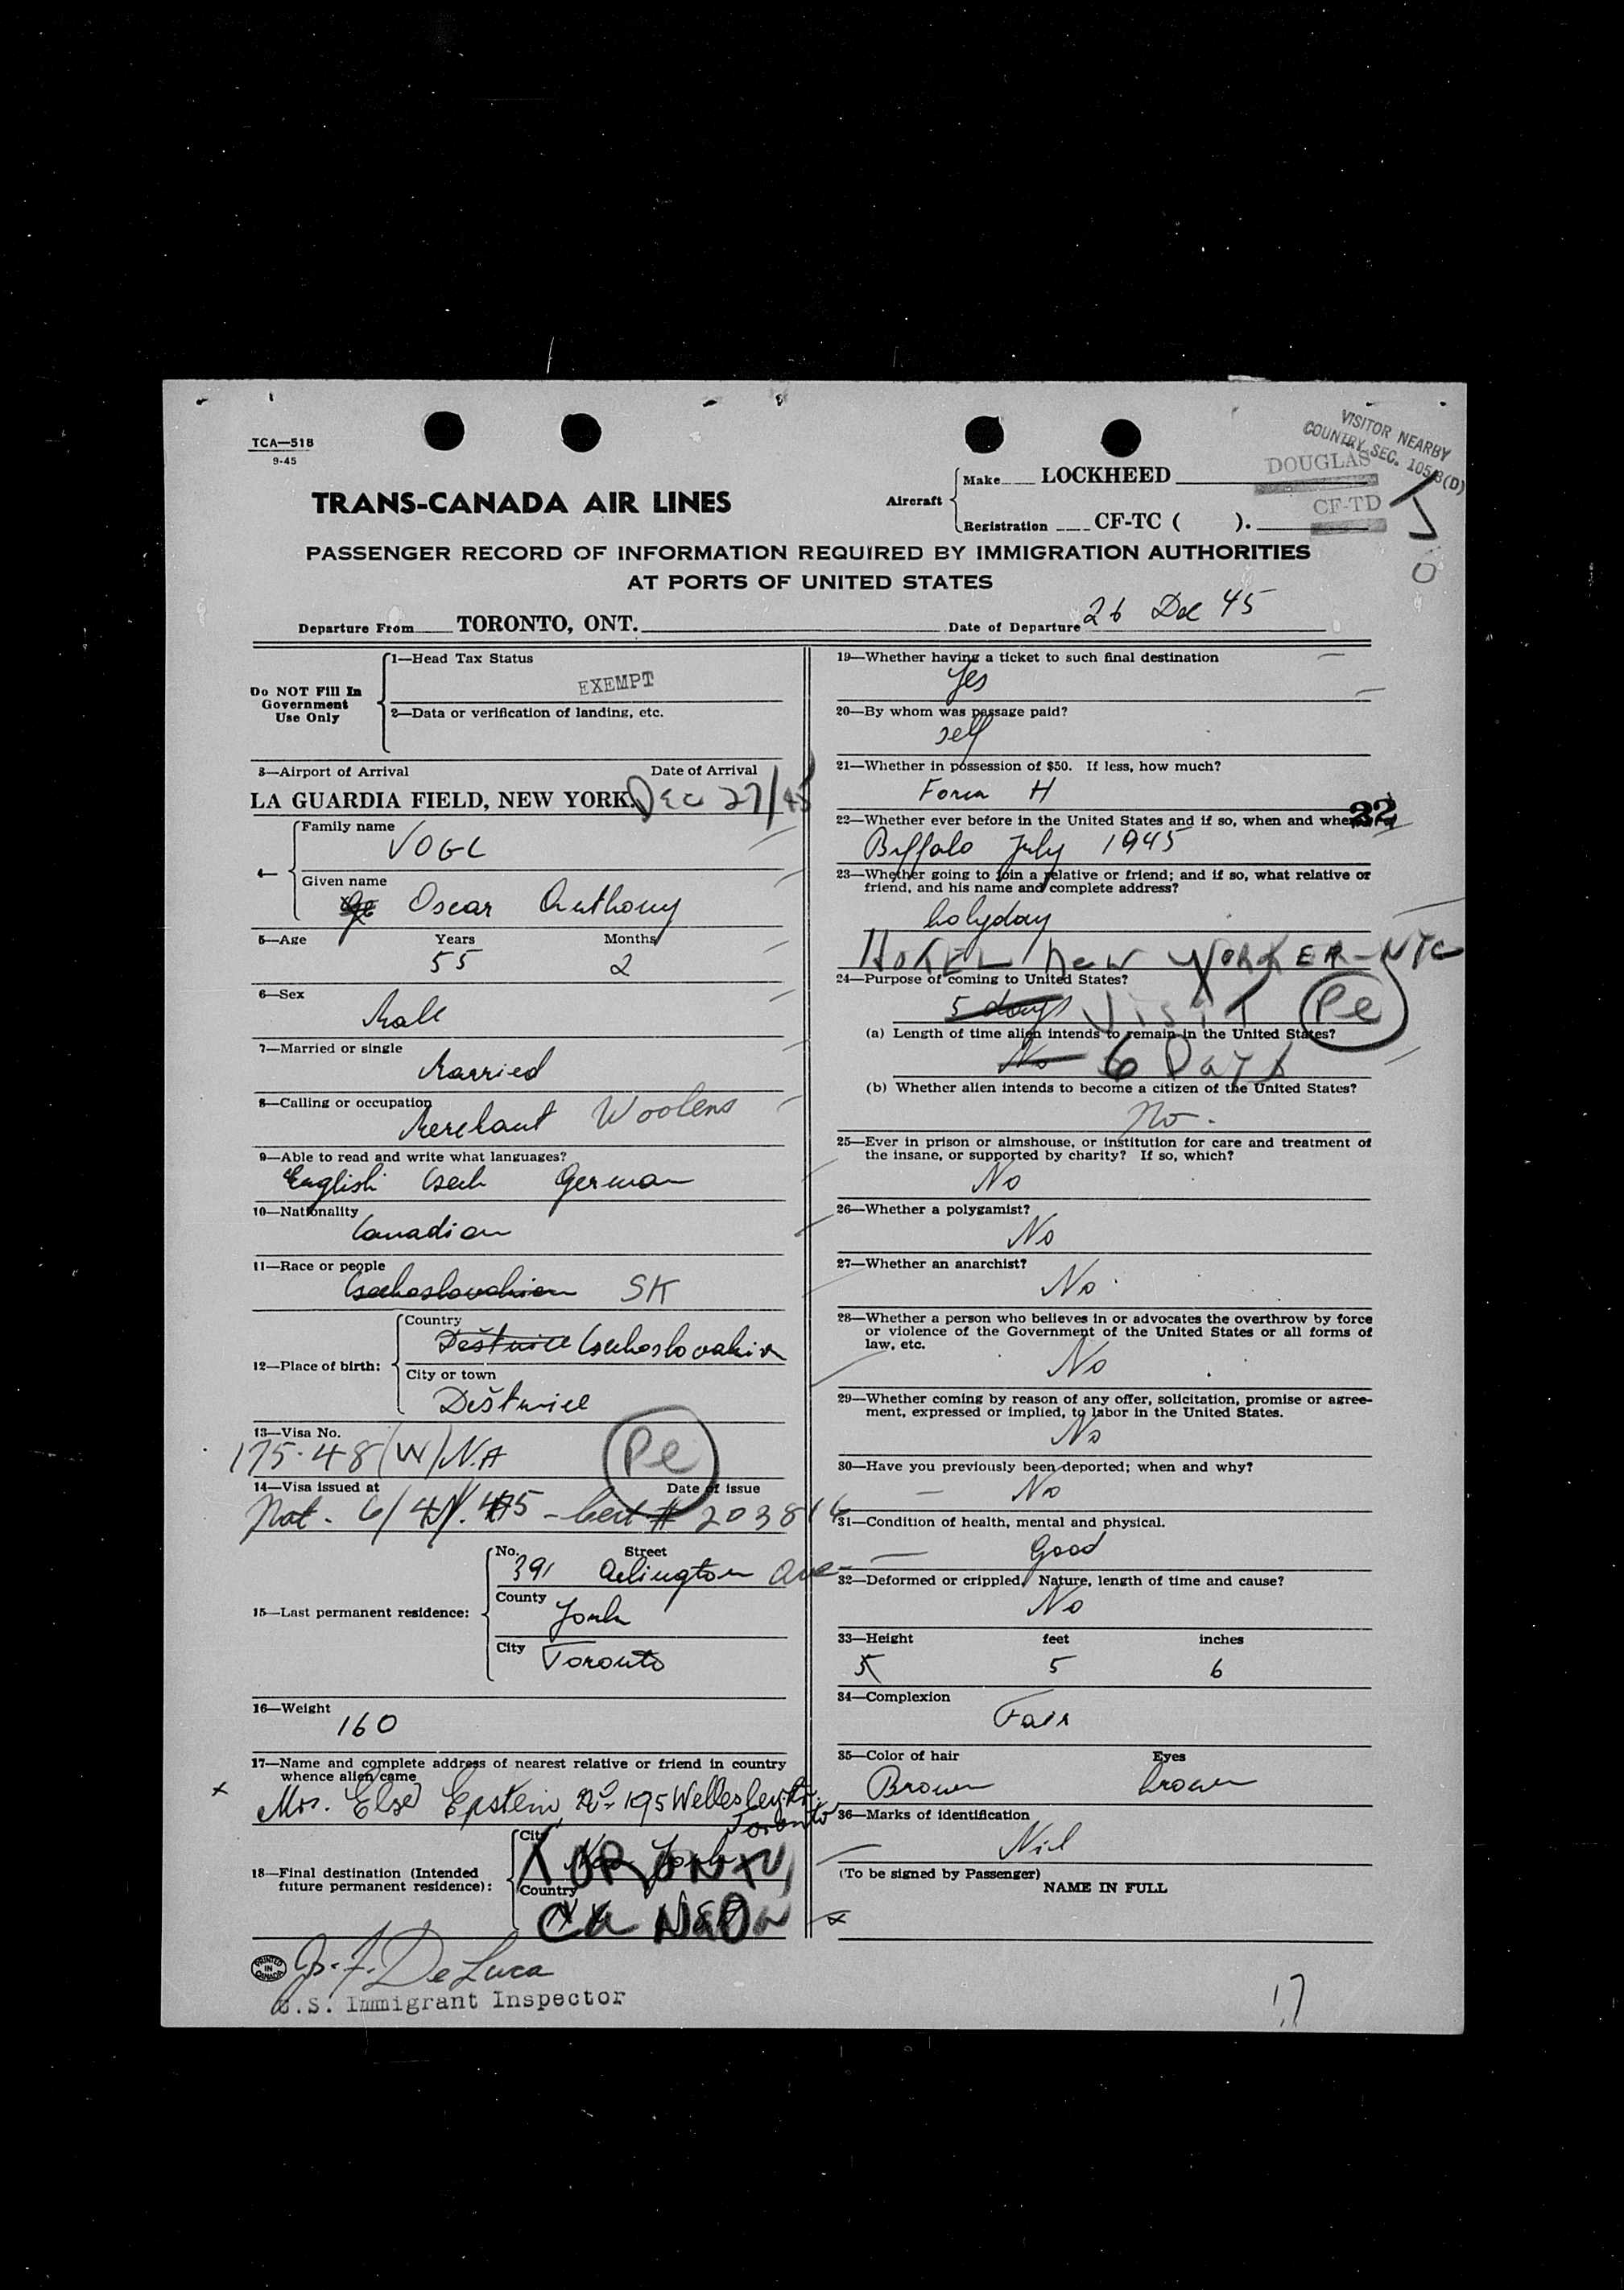 TCA—518
9-45
VISITOR NEARBY
COUNTRY SEC. 105.3(D)
DOUGLAS
CF-TD
TRANS-CANADA AIR LINES
Aircraft
Make LOCKHEED
Registration CF-TC ( ).
PASSENGER RECORD OF INFORMATION REQUIRED BY IMMIGRATION AUTHORITIES
AT PORTS OF UNITED STATES
Departure From TORONTO, ONT. Date of Departure 26 Dec 45
Do NOT Fill In
Government
Use Only
1—Head Tax Status
EXEMPT
2—Data or verification of landing, etc.
3—Airport of Arrival Date of Arrival
LA GUARDIA FIELD, NEW YORK. DEC 27/45
4—
Family name
VOGL
Given name
Oscar Anthony
5—Age Years Months
55 2
6—Sex
Male
7—Married or single
Married
8—Calling or occupation
Merchant Woolens
9—Able to read and write what languages?
English Csech German
10—Nationality
Canadian
11—Race or people
Csechoslovakian SK
12—Place of birth:
Country
Deštnice Csechoslovakia
City or town
Deštnice
13—Visa No.
175.48 (W) N.A
Pe
14—Visa issued at Date of issue
Nat. - cert # 203816
15—Last permanent residence:
No. Street
391 Arlington Ave
County
York
City Toronto
16—Weight
160
17—Name and complete address of nearest relative or friend in country
whence alien came
Mrs. Else Epstein, No 195 Wellesley Str.
Toronto
18—Final destination (Intended
future permanent residence):
City
New York TORONTO
Country
CANADA
J. F. DeLuca
U.S. Immigrant Inspector
PRINTED IN CANADA
19—Whether having a ticket to such final destination
Yes
20—By whom was passage paid?
self
21—Whether in possession of $50. If less, how much?
Form H
22—Whether ever before in the United States and if so, when and where?
22
Buffalo July 1945
23—Whether going to join a relative or friend; and if so, what relative or
friend, and his name and complete address?
holyday
HOTEL NEW YORKER-NYC
24—Purpose of coming to United States?
5 days VISIT Pe
(a) Length of time alien intends to remain in the United States?
No 6 DAYS
(b) Whether alien intends to become a citizen of the United States?
No.
25—Ever in prison or almshouse, or institution for care and treatment of
the insane, or supported by charity? If so, which?
No
26—Whether a polygamist?
No
27—Whether an anarchist?
No
28—Whether a person who believes in or advocates the overthrow by force
or violence of the Government of the United States or all forms of
law, etc.
No
29—Whether coming by reason of any offer, solicitation, promise or agree-
ment, expressed or implied, to labor in the United States.
No
30—Have you previously been deported; when and why?
No
31—Condition of health, mental and physical.
Good
32—Deformed or crippled. Nature, length of time and cause?
No
33—Height feet inches
5 5 6
34—Complexion
Fair
35—Color of hair Eyes
Brown brown
36—Marks of identification
Nil
(To be signed by Passenger)
NAME IN FULL
17